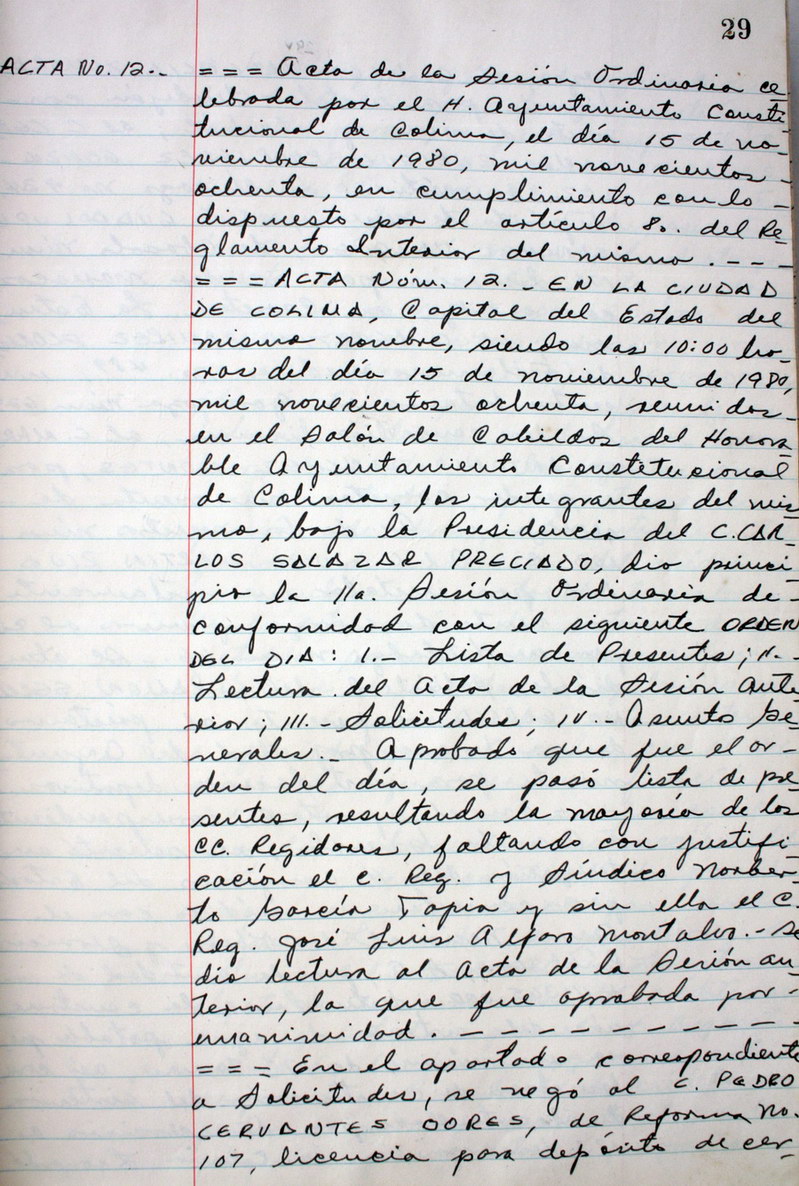 29
ACTA No. 12.-
= = = Acta de la Sesión Ordinaria ce-
lebrada por el H. Ayuntamiento Consti-
tucional de Colima, el día 15 de no-
viembre de 1980, mil novecientos -
ochenta, en cumplimiento con lo -
dispuesto por el artículo 8o. del Re-
glamento Interior del mismo. - - -
= = = ACTA Núm. 12. - EN LA CIUDAD
DE COLIMA, Capital del Estado del
mismo nombre, siendo las 10:00 ho-
ras del día 15 de noviembre de 1980,
mil novecientos ochenta, reunidos
en el Salón de Cabildos del Honora-
ble Ayuntamiento Constitucional
de Colima, los integrantes del mis-
mo, bajo la Presidencia del C. CAR-
LOS SALAZAR PRECIADO, dio princi-
pio la 11a. Sesión Ordinaria de -
conformidad con el siguiente ORDEN
DEL DIA: I.- Lista de Presentes; II.-
Lectura del Acta de la Sesión Ante-
rior; III.- Solicitudes; IV.- Asunto Ge-
nerales.- Aprobado que fue el or-
den del día, se pasó lista de pre-
sentes, resultando la mayoría de los
CC. Regidores, faltando con justifi-
cación el C. Reg. y Síndico Norber-
to García Tapia y sin ella el C.
Reg. José Luis Alfaro Montalvo.- Se
dio lectura al Acta de la Sesión an-
terior, la que fue aprobada por -
unanimidad. - - - - - - - - - -
= = = En el apartado correspondiente
a Solicitudes, se negó al C. PEDRO
CERVANTES OORES, de Reforma No.
107, licencia para depósito de cer-